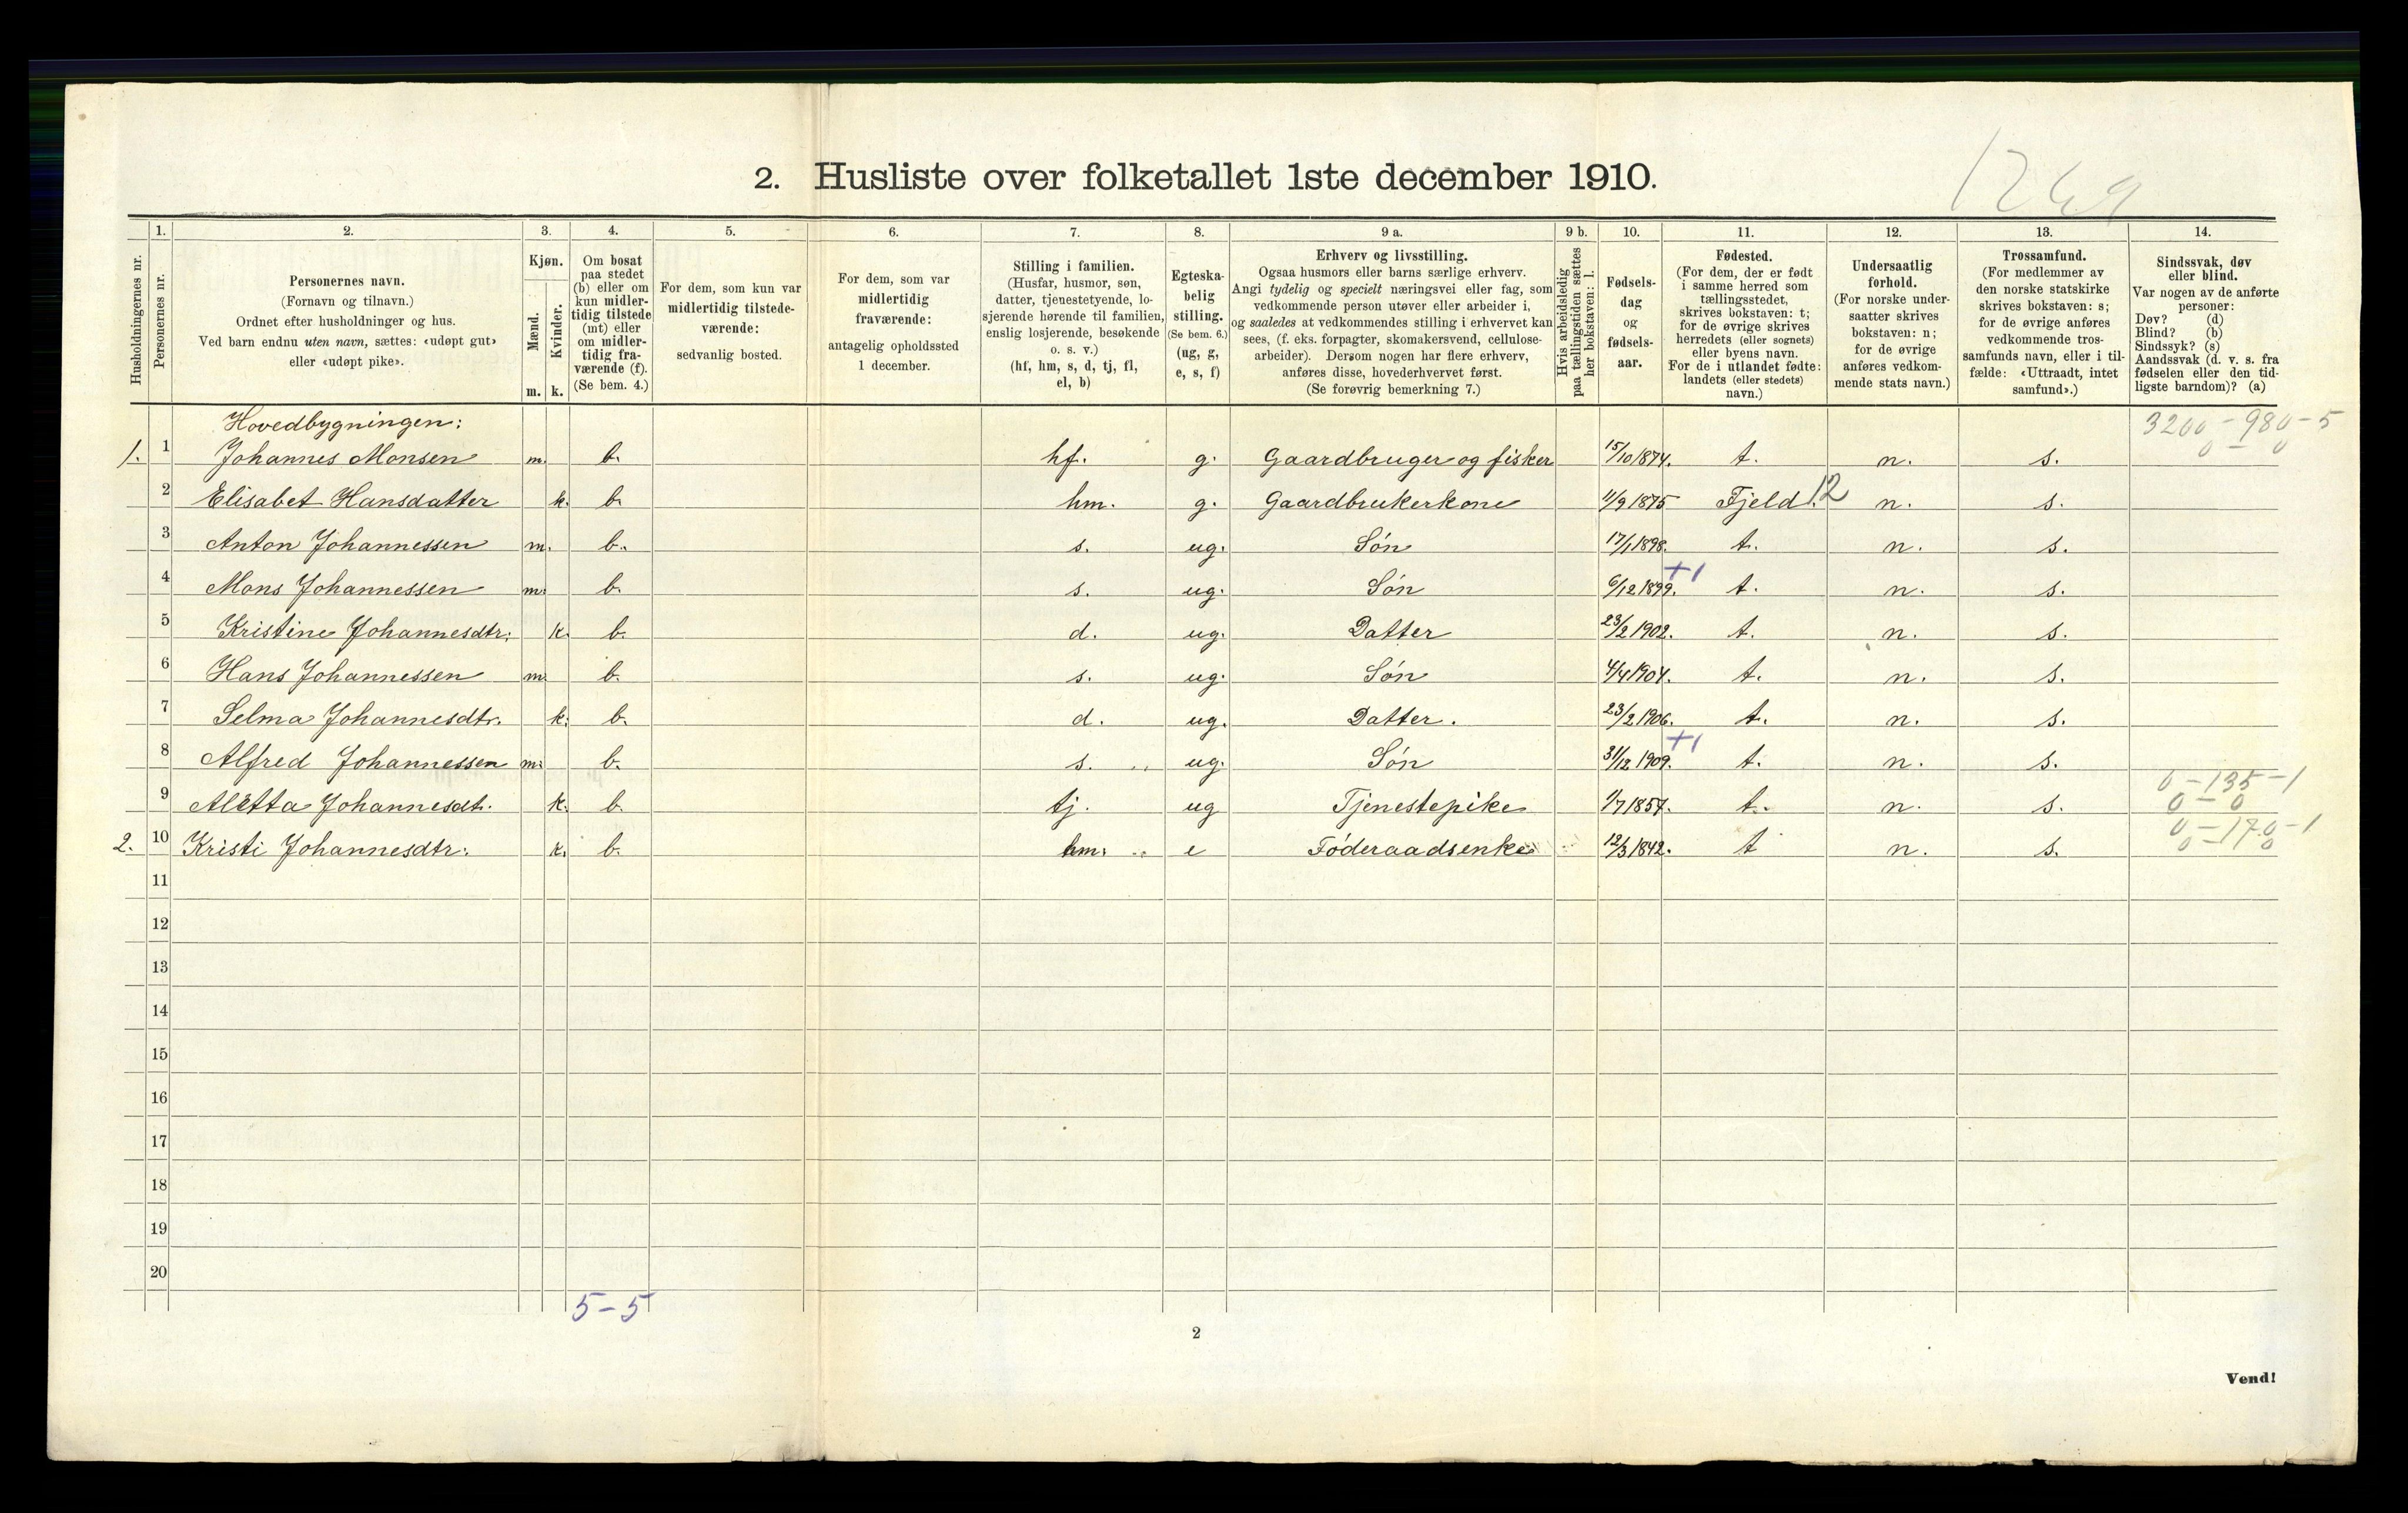 2. Husliste over folketallet 1ste december 1910.
1269
Husholdningernes nr.
1. Personernes nr.
2. Personernes navn.
(Fornavn og tilnavn.)
Ordnet efter husholdninger og hus.
Ved barn endnu uten navn, sættes: «udøpt gut»
eller «udøpt pike».
3. Kjøn.
Mænd. Kvinder.
m. k.
4. Om bosat
paa stedet
(b) eller om
kun midler-
tidig tilstede
(mt) eller
om midler-
tidig fra-
værende (f).
(Se bem. 4.)
5. For dem, som kun var
midlertidig tilstede-
værende:
sedvanlig bosted.
6. For dem, som var
midlertidig
fraværende:
antagelig opholdssted
1 december.
7. Stilling i familien.
(Husfar, husmor, søn,
datter, tjenestetyende, lo-
sjerende hørende til familien,
enslig losjerende, besøkende
o. s. v.)
(hf, hm, s, d, tj, fl,
el, b)
8. Egteska-
belig
stilling.
(Se bem. 6.)
(ug, g,
e, s, f)
9 a. Erhverv og livsstilling.
Ogsaa husmors eller barns særlige erhverv.
Angi tydelig og specielt næringsvei eller fag, som
vedkommende person utøver eller arbeider i,
og saaledes at vedkommendes stilling i erhvervet kan
sees, (f. eks. forpagter, skomakersvend, cellulose-
arbeider). Dersom nogen har flere erhverv,
anføres disse, hovederhvervet først.
(Se forøvrig bemerkning 7.)
9 b. Hvis arbeidsledig
paa tællingstiden sættes
her bokstaven: l.
10. Fødsels-
dag
og
fødsels-
aar.
11. Fødested.
(For dem, der er født
i samme herred som
tællingsstedet,
skrives bokstaven: t;
for de øvrige skrives
herredets (eller sognets)
eller byens navn.
For de i utlandet fødte:
landets (eller stedets)
navn.)
12. Undersaatlig
forhold.
(For norske under-
saatter skrives
bokstaven: n;
for de øvrige
anføres vedkom-
mende stats navn.)
13. Trossamfund.
(For medlemmer av
den norske statskirke
skrives bokstaven: s;
for de øvrige anføres
vedkommende tros-
samfunds navn, eller i til-
fælde: «Uttraadt, intet
samfund».)
14. Sindssvak, døv
eller blind.
Var nogen av de anførte
personer:
Døv? (d)
Blind? (b)
Sindssyk? (s)
Aandssvak (d. v. s. fra
fødselen eller den tid-
ligste barndom)? (a)
Hovedbygningen: 3200-980-5
1. 1 Johannes Monsen m. b. hf. g. Gaardbruger og fisker 15/10 1874. t. n. s. 0 - 0
2 Elisabet Hansdatter k. b. hm. g. Gaardbrukerkone 11/9 1875 Fjeld. 12 n. s.
3 Anton Johannessen m. b. s. ug. Søn 17/1 1898. t. n. s.
4 Mons Johannessen m. b. s. ug. Søn 6/12 1899. +1 t. n. s.
5 Kristine Johannesdtr: k. b. d. ug. Datter 23/2 1902. t. n. s.
6 Hans Johannessen m. b. s. ug. Søn 4/4 1904. t. n. s.
7 Selma Johannesdtr. k. b. d. ug. Datter. 23/2 1906. t. n. s.
8 Alfred Johannessen m. b. s. ug. Søn 31/12 1909. +1 t. n. s.
9 Aletta Johannesdt. k. b. tj. ug Tjenestepike 1/7 1857. t. n. s. 0-135-1 0-0
2. 10 Kristi Johannesdtr: k. b. hm. e Føderaadsenke 12/3 1842. t n. s. 0-170-1 0-0
11
12
13
14
15
16
17
18
19
20
5-5
2
Vend!